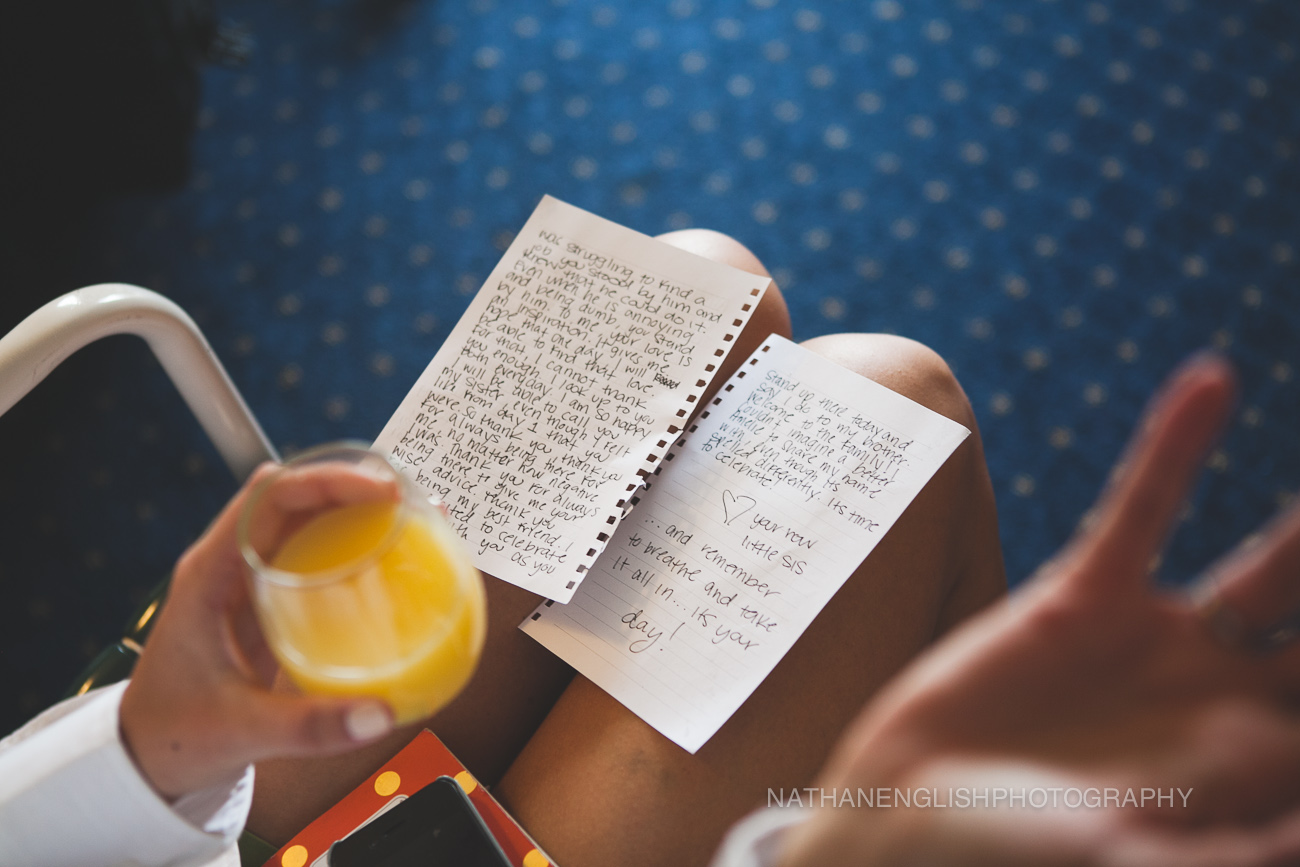 was struggling to find a
job you stood by him and
knew that he could do it.
Even when he is annoying
and being dumb, you stand
by him. To me, your love is
an inspiration, it gives me
hope that one day I will
be able to find that love.
For that I cannot thank
you enough. I look up to you
both everyday. I am so happy
will be able to call you my
sister even though I felt
like from day 1 that you
were. So thank you, thank you
for always being there for
me no matter how negative
I was. Thank you for always
being there to give me your
wise advice. Thank you
being my best friend.
to celebrate
with you as you
Stand up there today and
say I do to my brother.
Welcome to the family! I
couldn't imagine a better
Amelie to share my name
with, even though its
spelled differently. Its time
to celebrate!
♡ your now
little sis
... and remember
to breathe and take
it all in... Its your
day!
NATHANENGLISHPHOTOGRAPHY